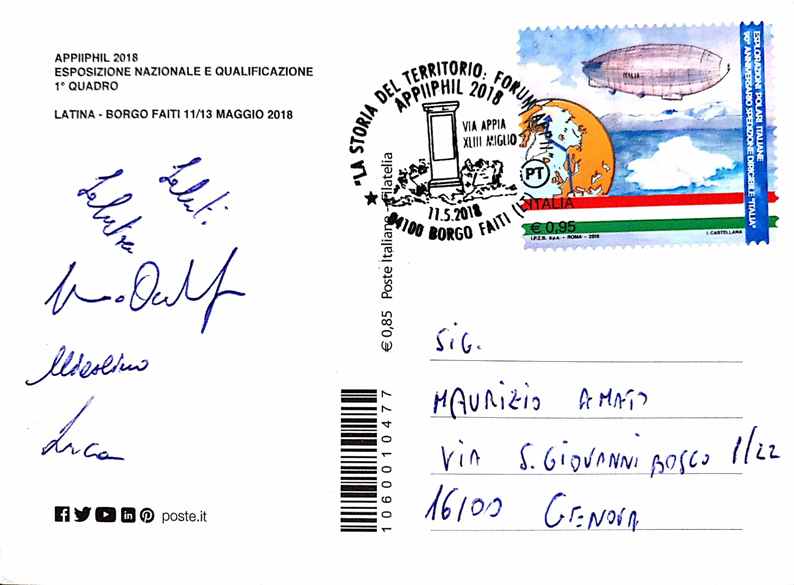 APPIIPHIL 2018
ESPOSIZIONE NAZIONALE E QUALIFICAZIONE
1° QUADRO
LATINA - BORGO FAITI 11/13 MAGGIO 2018
"LA STORIA DEL TERRITORIO: FORUM APPII"
APPIIPHIL 2018
VIA APPIA
XLIII MIGLIO
11.5.2018
04100 BORGO FAITI
PT
ITALIA
ESPLORAZIONI POLARI ITALIANE
90° ANNIVERSARIO SPEDIZIONE DIRIGIBILE "ITALIA"
ITALIA
€ 0,95
I.P.Z.S. S.p.A. - ROMA - 2018
I. CASTELLANA
€ 0,85 Poste Italiane - Filatelia
Saluti
Luca
SIG.
MAURIZIO AMATO
VIA S. GIOVANNI BOSCO 1/22
16100 GENOVA
1060010477
poste.it